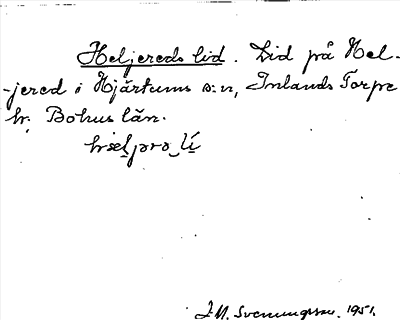 Heljereds lid. Lid på Hel-
-jered i Hjärtums s:n, Inlands Torpe
hr, Bohus län.
J.M. Svenungsson. 1951.